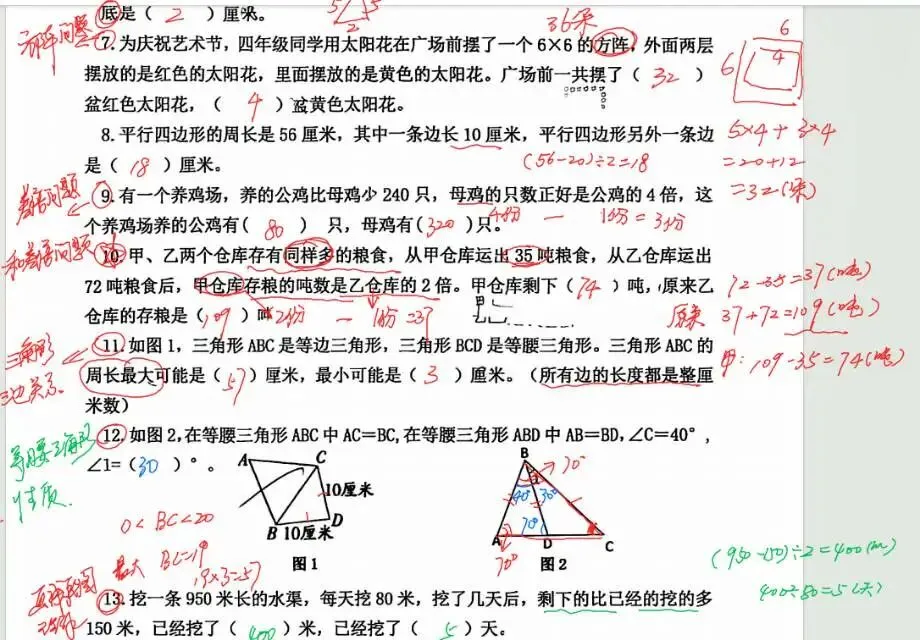 底是（ 2 ）厘米。
5 5
2
方阵问题
36朵
7.为庆祝艺术节，四年级同学用太阳花在广场前摆了一个6×6的方阵，外面两层
摆放的是红色的太阳花，里面摆放的是黄色的太阳花。广场前一共摆了（ 32 ）
盆红色太阳花，（ 4 ）盆黄色太阳花。
6
6 4
5×4+3×4
=20+12
=32(朵)
8.平行四边形的周长是56厘米，其中一条边长10厘米，平行四边形另外一条边
是（ 18 ）厘米。
(56-20)÷2=18
差倍问题
9.有一个养鸡场，养的公鸡比母鸡少240只，母鸡的只数正好是公鸡的4倍，这
个养鸡场养的公鸡有（ 80 ）只，母鸡有（320）只。
4份 — 1份=3份
和差倍问题
10.甲、乙两个仓库存有同样多的粮食，从甲仓库运出35吨粮食，从乙仓库运出
72吨粮食后，甲仓库存粮的吨数是乙仓库的2倍。甲仓库剩下（ 74 ）吨，原来乙
仓库的存粮是（109）吨
2份 — 1份=37
甲
乙
72-35=37(吨)
原来 37+72=109(吨)
甲：109-35=74(吨)
三角形
三边关系
11.如图1，三角形ABC是等边三角形，三角形BCD是等腰三角形。三角形ABC的
周长最大可能是（ 57 ）厘米，最小可能是（ 3 ）厘米。（所有边的长度都是整厘
米数）
等腰三角形
性质
12.如图2,在等腰三角形ABC中AC=BC,在等腰三角形ABD中AB=BD,∠C=40°，
∠1=（30）°。
A C
10厘米
B 10厘米 D
图1
0<BC<20
最大 BC=19
19×3=57
B
70°
40° 30°
70°
A D C
70°
图2
(950-150)÷2=400(m)
400÷80=5(天)
13.挖一条950米长的水渠，每天挖80米，挖了几天后，剩下的比已经的挖的多
150米，已经挖了（ 400 ）米，已经挖了（ 5 ）天。